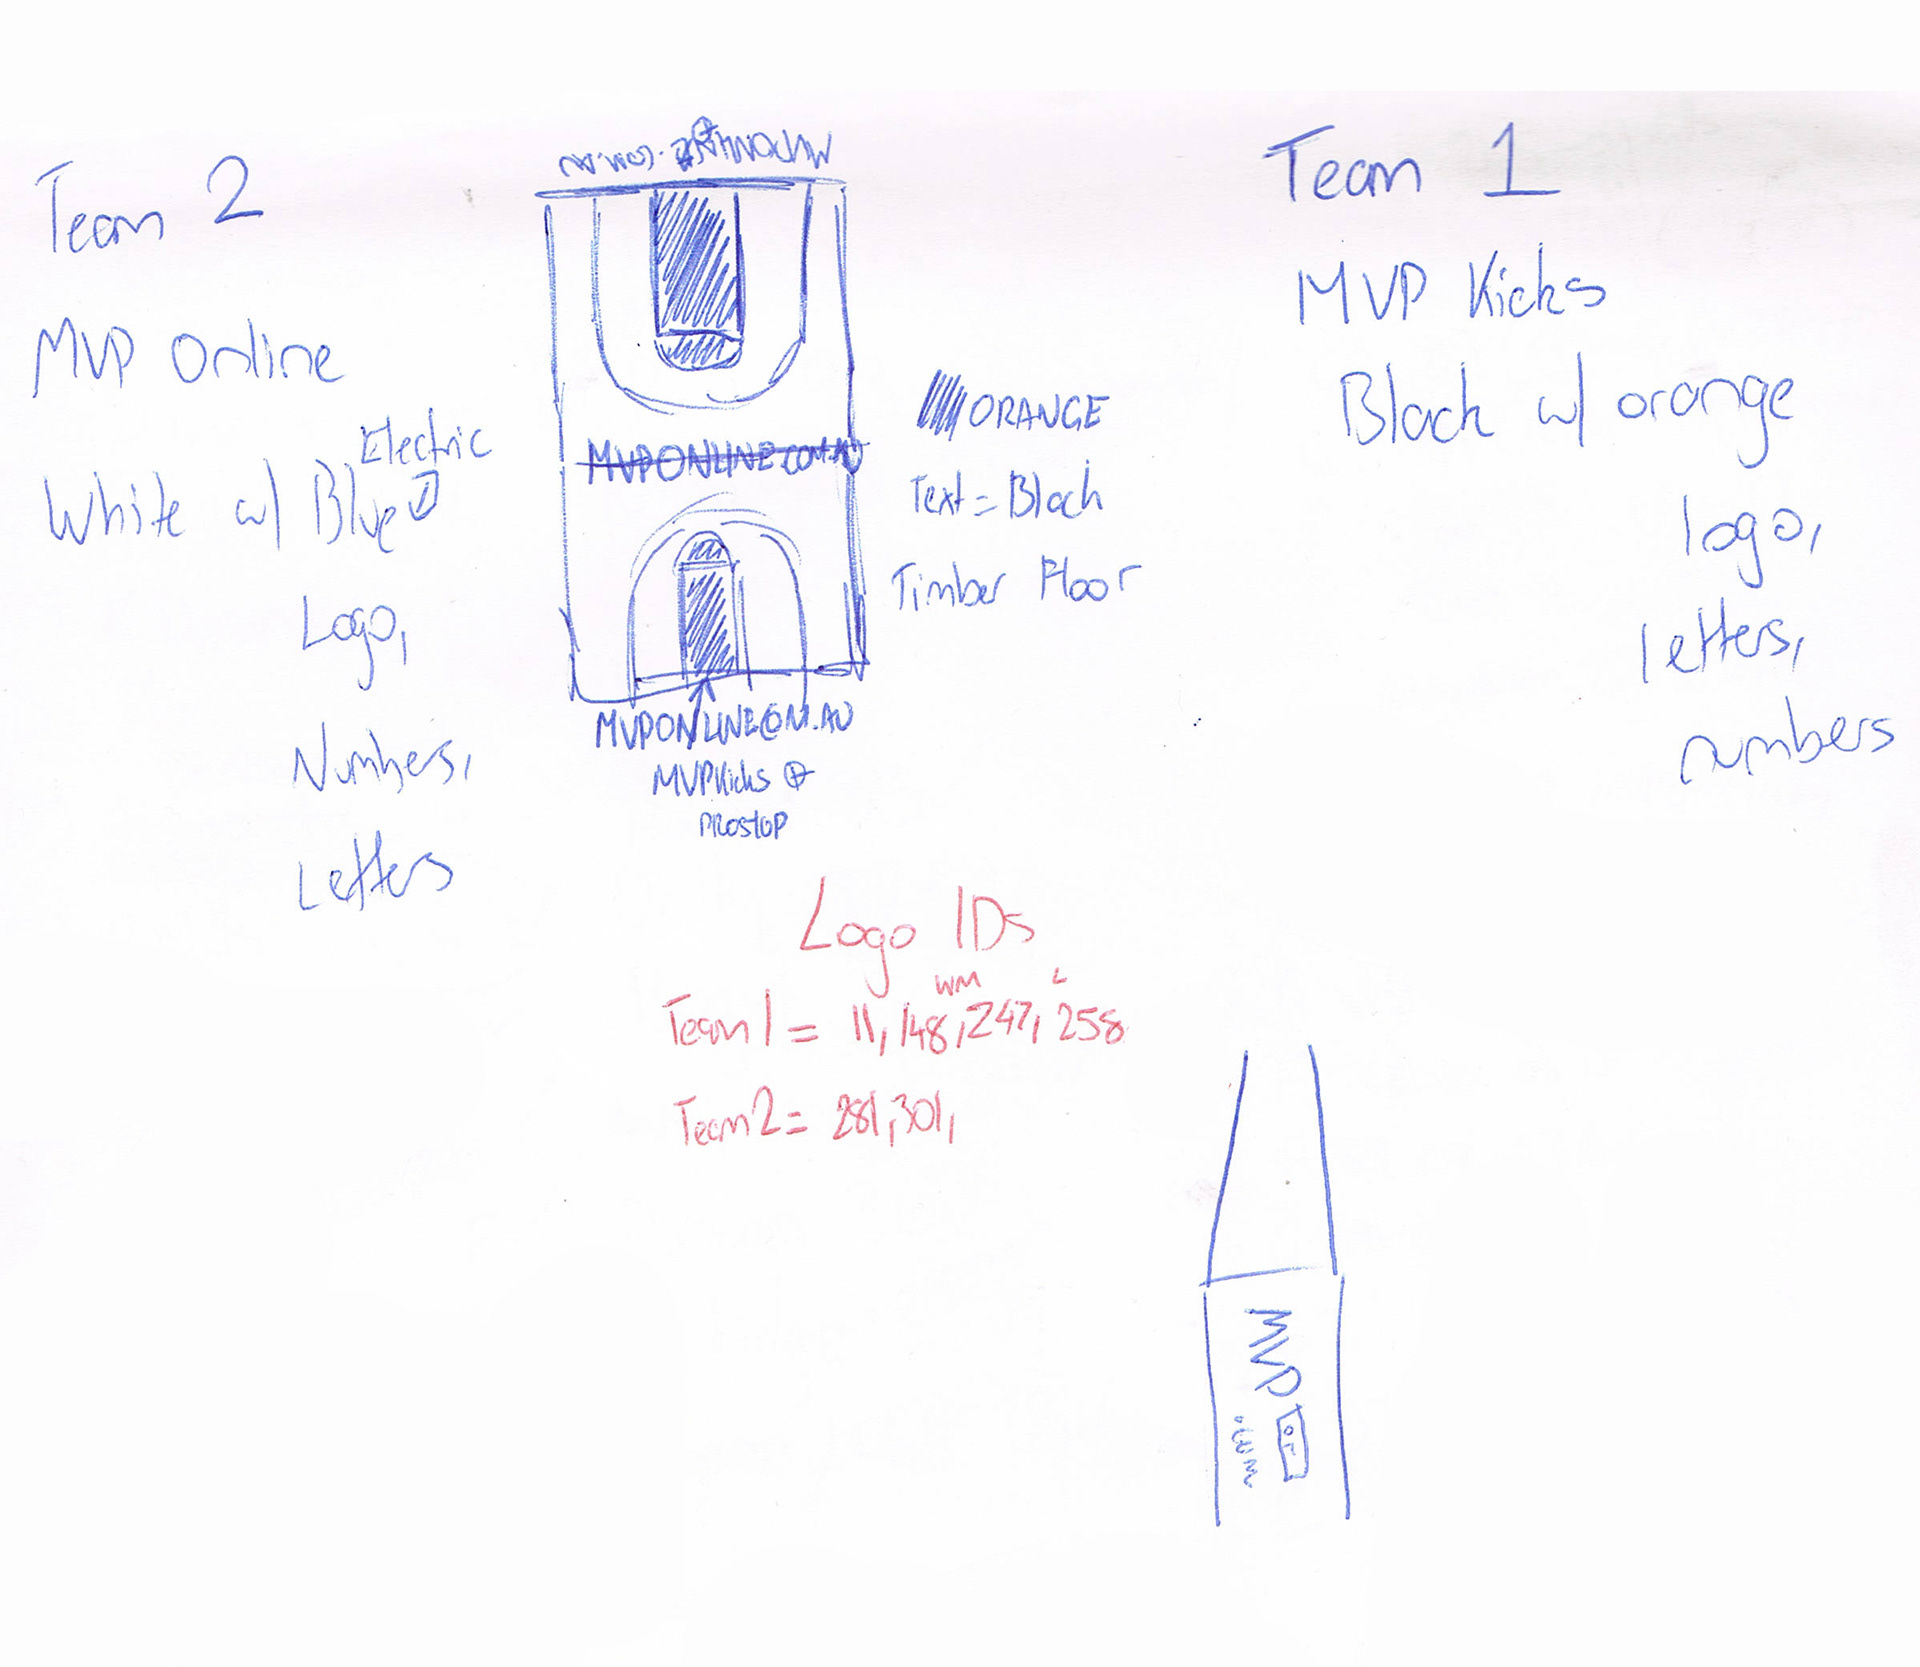 Team 2
MVP Online
Electric
White w/ Blue
Logo,
Numbers,
Letters
MVPONLINE.COM.AU
MVPONLINE.COM.AU
MVPKicks
PROSTOP
ORANGE
Text = Black
Timber Floor
Team 1
MVP Kicks
Black w/ orange
logo,
letters,
numbers
Logo IDs
WM L
Team 1 = 11, 148, 247, 258
Team 2 = 281, 301,
MVP
.com